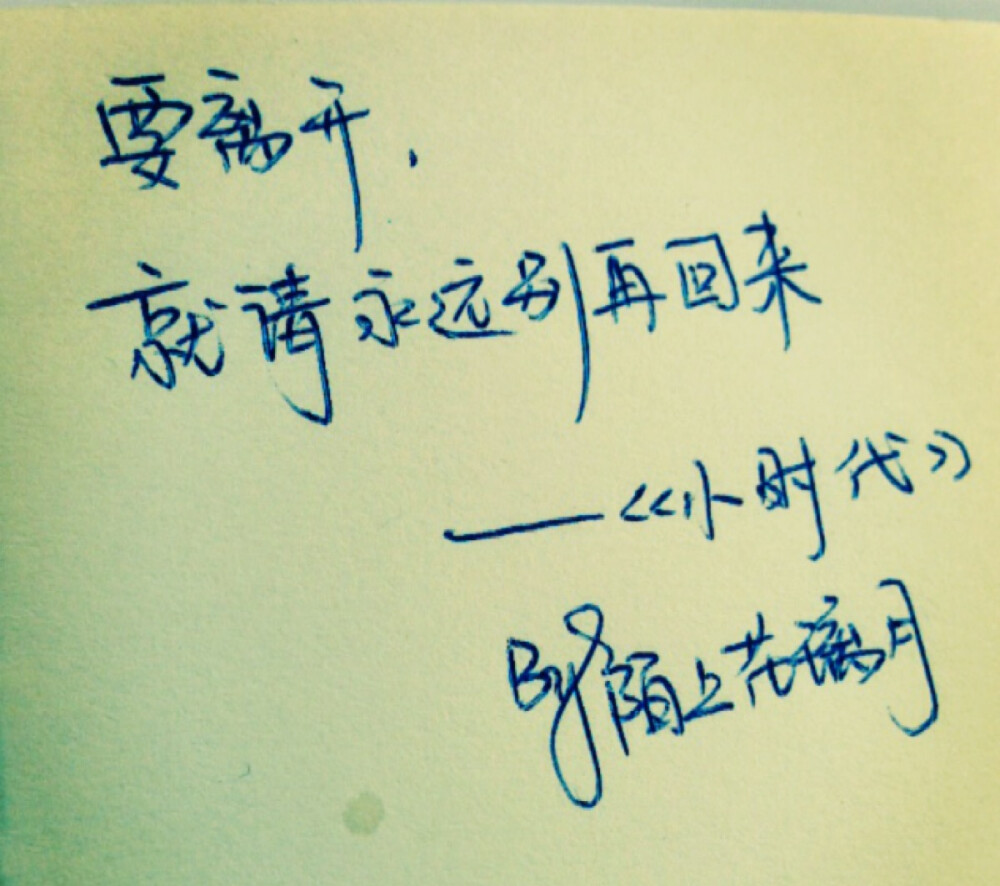 要离开，
就请永远别再回来
——《小时代》
By 陌上花璃月